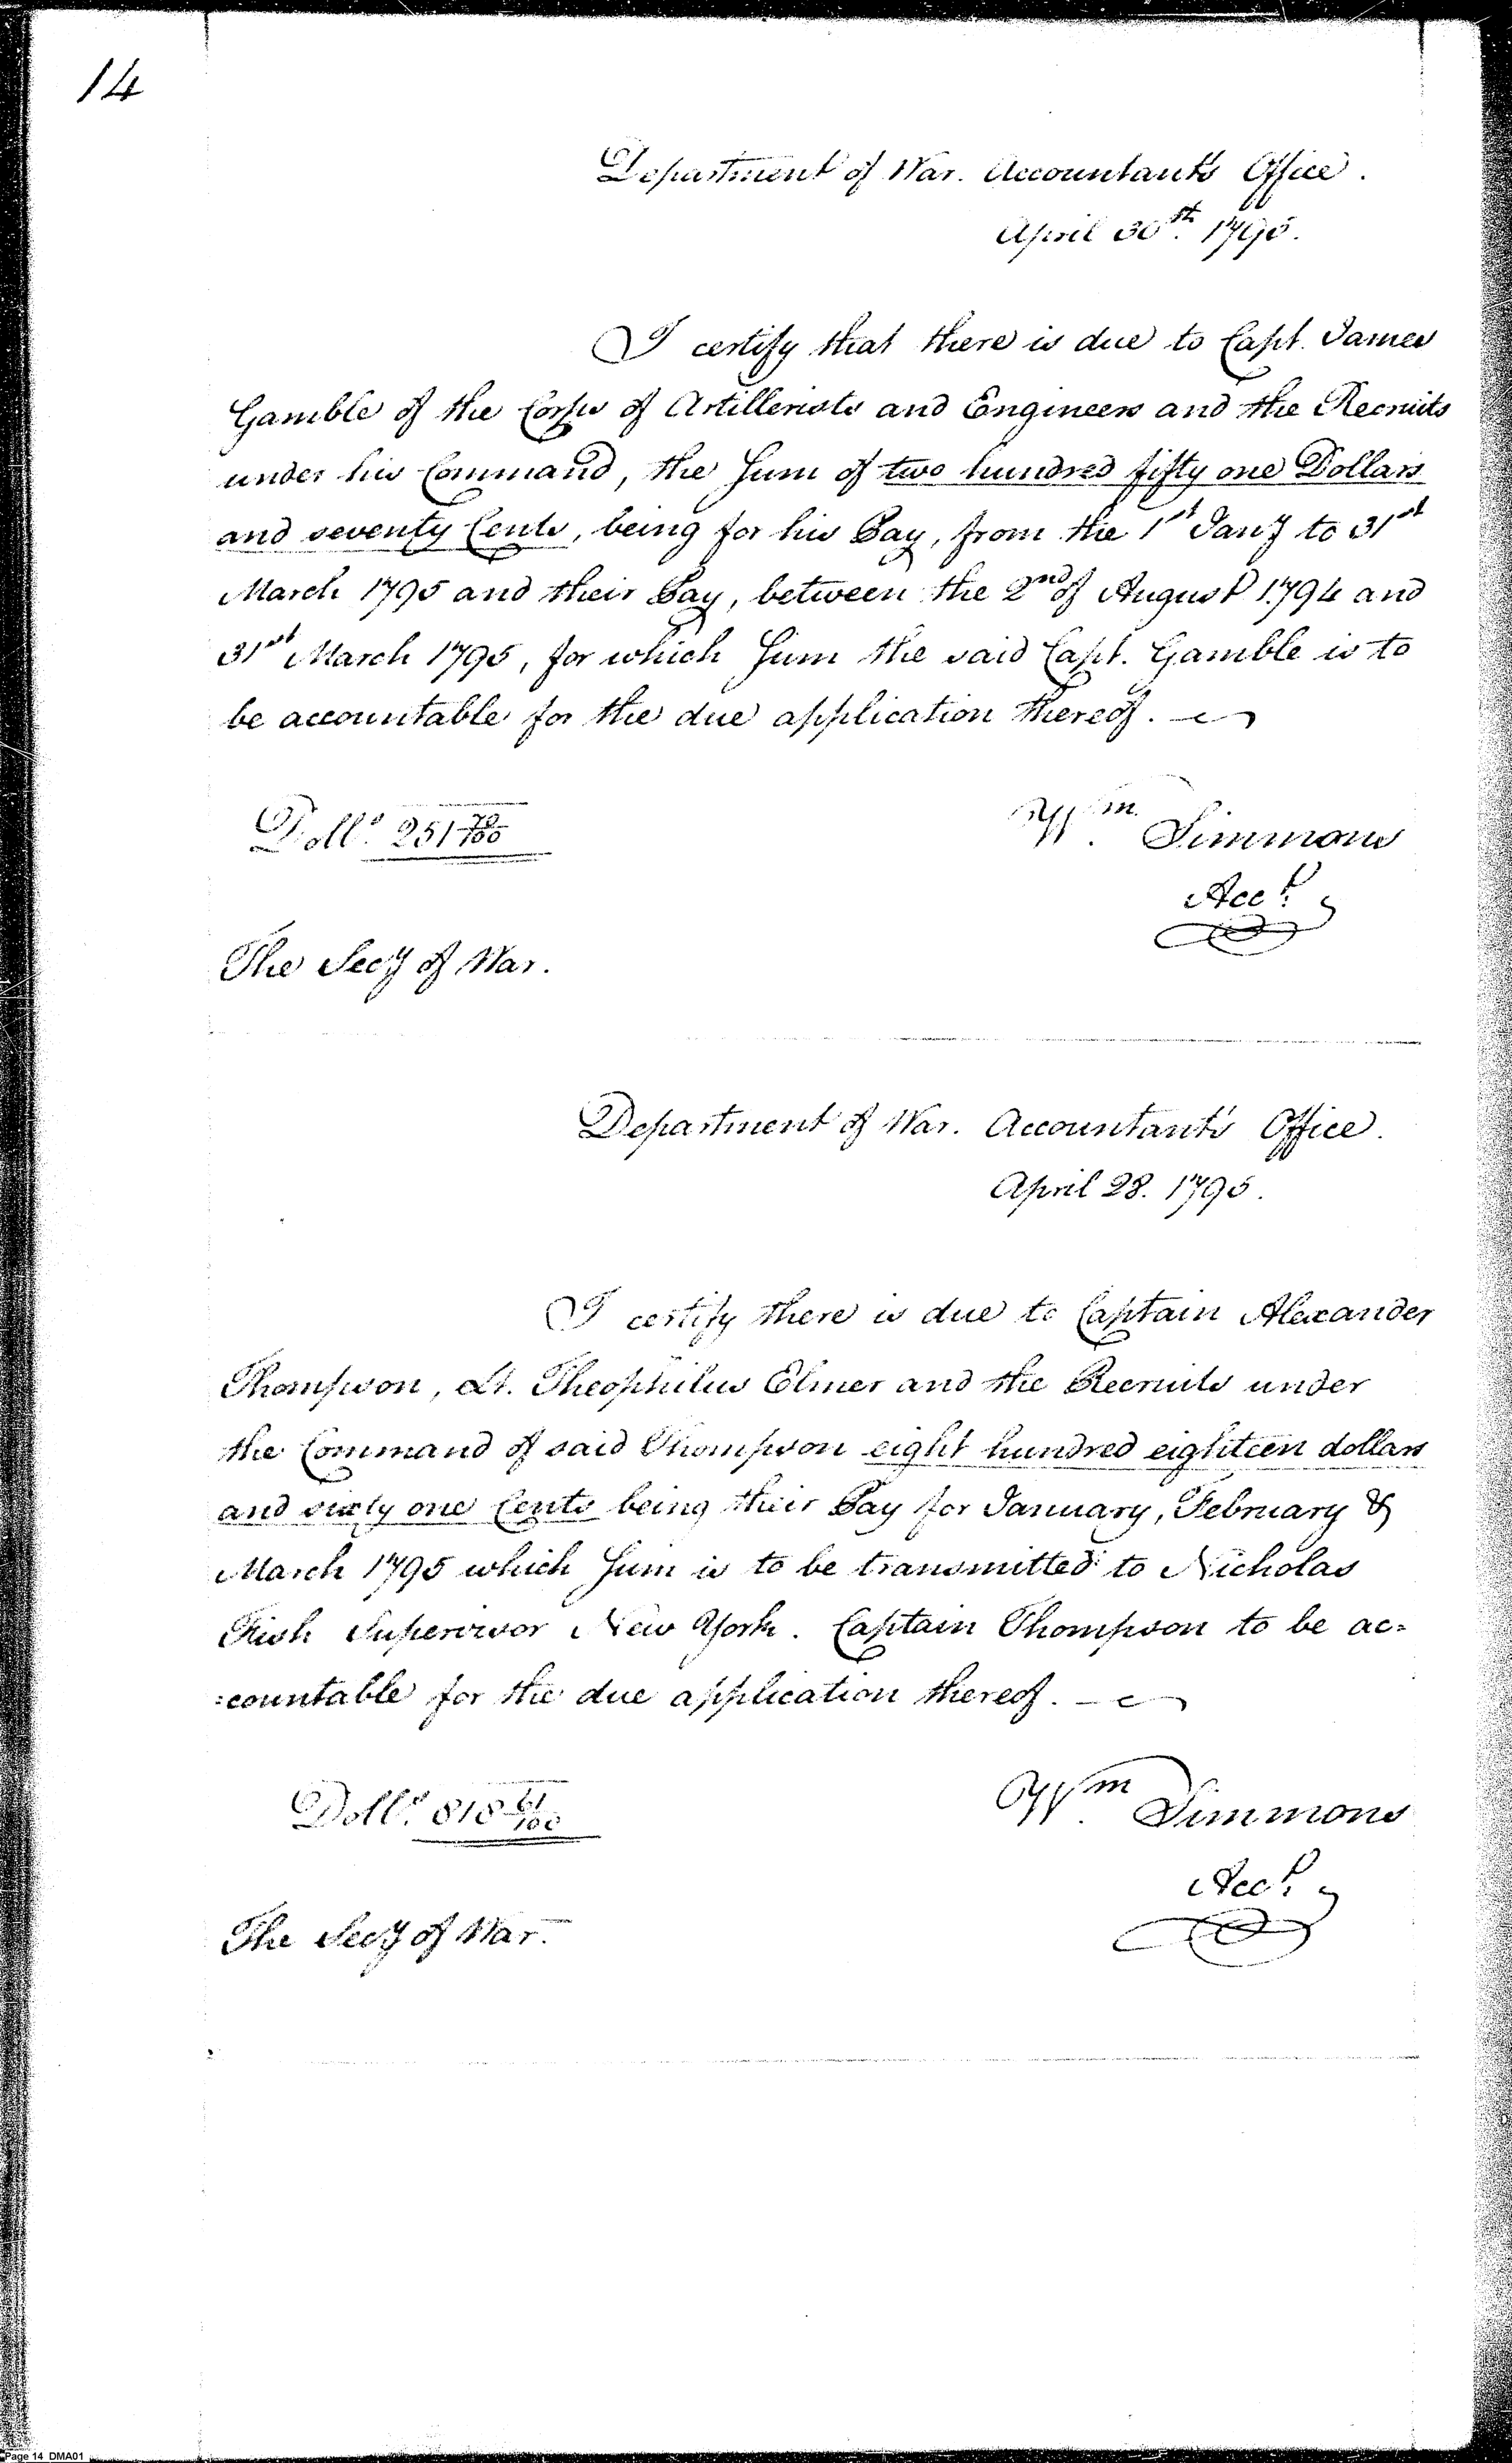 14
Department of War. Accountant's Office.
April 30th. 1795.
I certify that there is due to Capt. James
Gamble of the Corps of Artillerists and Engineers and the Recruits
under his Command, the Sum of two hundred fifty one Dollars
and seventy Cents, being for his Pay, from the 1st Jany to 31st
March 1795 and their Pay, between the 2nd of August 1794 and
31st March 1795, for which Sum the said Capt. Gamble is to
be accountable for the due application thereof.
Dolls. 251 70/100
Wm. Simmons
Acct.
The Secy of War.
Department of War. Accountant's Office.
April 28. 1795.
I certify there is due to Captain Alexander
Thompson, Lt. Theophilus Elmer and the Recruits under
the Command of said Thompson eight hundred eighteen dollars
and sixty one Cents being their Pay for January, February &
March 1795 which Sum is to be transmitted to Nicholas
Fish Supervisor New York. Captain Thompson to be ac=
=countable for the due application thereof.
Dolls. 818 61/100
Wm. Simmons
Acct.
The Secy of War.
Page 14 DMA01